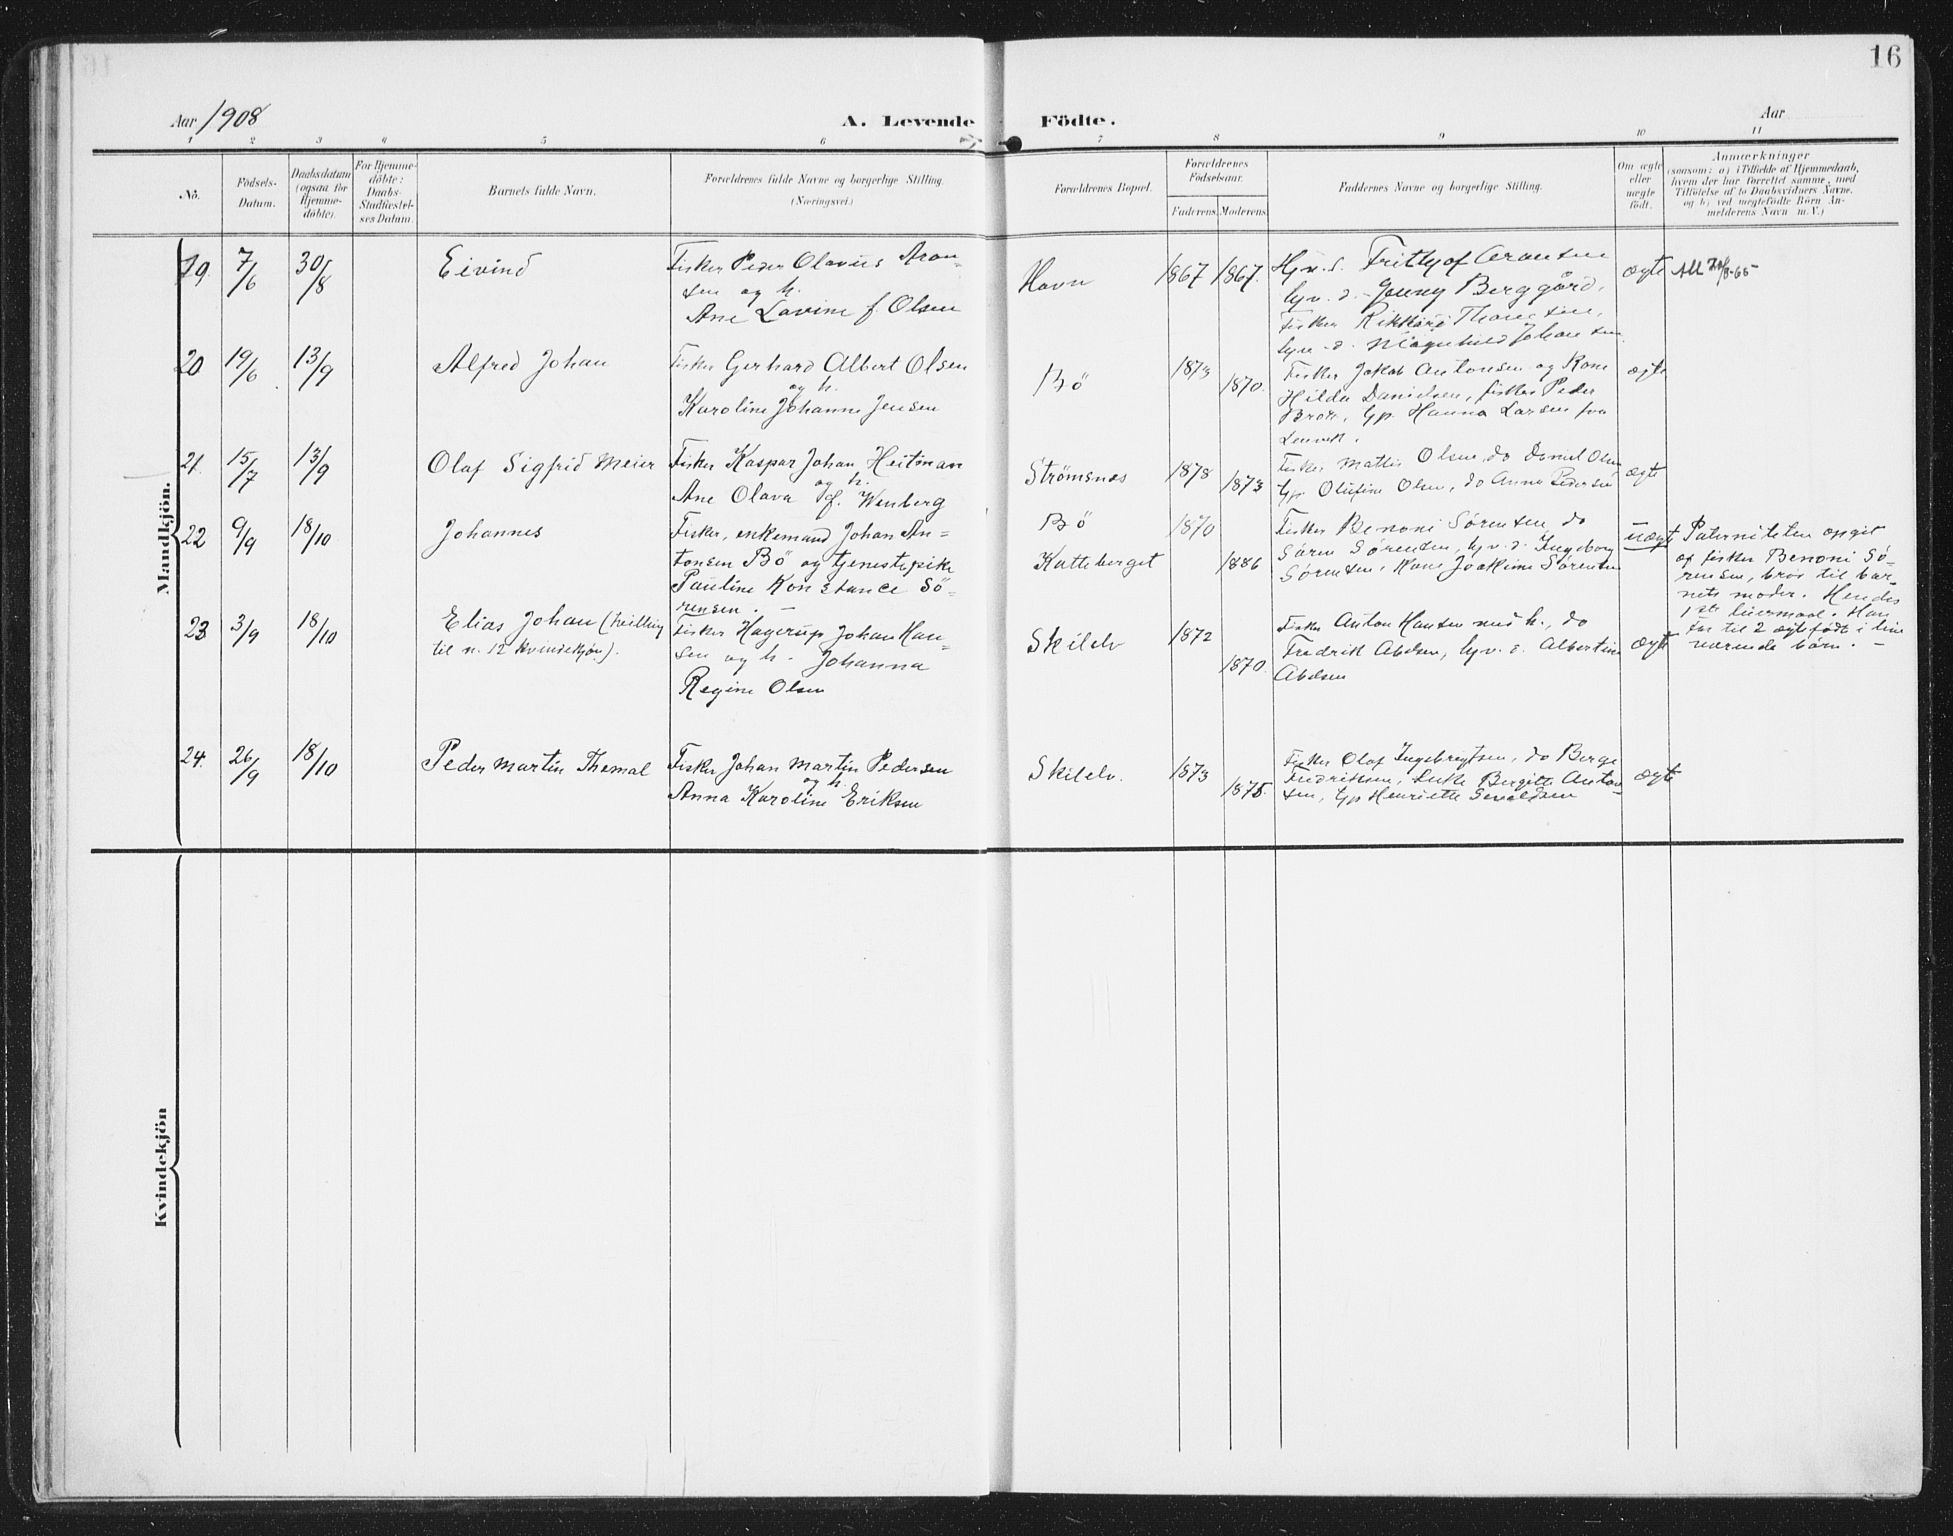 16
Aar 1908
A. Levende Födte.
Aar
1 2 3 4 5 6 7 8 9 10 11
No.
Födsels-
Datum.
Daabsdatum
(ogsaa for
Hjemme-
döbte).
For Hjemme-
döbte:
Daabs-
Stadfæstel-
ses Datum.
Barnets fulde Navn.
Forældrenes fulde Navne og borgerlige Stilling.
(Næringsvei.)
Forældrenes Bopæl.
Forældrenes
Födselsaar.
Faderens. Moderens.
Faddernes Navne og borgerlige Stilling.
Om ægte
eller
uægte
födt.
Anmærkninger
(saasom: a) i Tilfælde af Hjemmedaab,
hvem der har forrettet samme, med
Tilföielse af to Daabsvidners Navne.
og b) ved uægtefödte Börn An-
melderens Navn m. V.)
Mandkjön.
19 7/6 30/8 Eivind
Fisker Peder Olavus Aron-
sen og h.
Ane Lovine f. Olsen
Havn 1867 1867.
Hjv. s. Frithjof Aronsen
hjv. d. Jenny Berggård,
fisker Rikkard
hjv. d. Magnhild Johansen
ægte
20 19/6 13/9 Alfred Johan
Fisker Gerhard Albert Olsen
og h.
Karoline Johanne Jensen
Bö 1873 1870.
Fisker Jakob Antonsen og Kone
Hilda Danielsen, fisker Peder
Brox, Gp. Hanna Larsen fra
Lenvik.
ægte
21. 15/7 13/9 Olaf Sigfrid Meier
Fisker Kaspar Johan Heitman
og h.
Ane Olava f. Wenberg
Strömsnes 1878 1873
Fisker Mattis Olsen, do Daniel Olsen
Gp. Olufine Olsen, do Anna Pedersen
ægte
22 9/9 18/10 Johannes
Fisker, enkemand Johan An-
tonsen Bö og tjenestepike
Pauline Konstance Sö-
rensen. —
Bö 1870
Katteberget 1886
Fisker Benoni Sörensen, do
Sören Sörensen, hjv. d. Ingeborg
Sörensen, Kone Joakime Sörensen
uægt
Paterniteten opgit
af fisker Benoni Sö-
rensen, bror til bar-
nets moder. Hendes
1ste leiermaal. Han
far til 2 ægtefödte i live
værende börn. —
23 3/9 18/10 Elias Johan (tvilling
til n. 12 kvindekjön).
Fisker Hagerup Johan Han-
sen og h. Johanna
Regine Olsen
Skilelv 1872 1870.
Fisker Anton Hansen med h., do
Fredrik Abelsen, hjv. d. Albertine
Abelsen
ægte
24. 26/9 18/10 Peder Martin Themal
Fisker Johan Martin Pedersen
og h.
Anna Karoline Eriksen
Skilelv. 1873 1875.
Fisker Olaf Ingebrigtsen, do Berge
Fredriksen, Enke Bergitte Anton-
sen, Gp Henriette
ægte
Kvindekjön